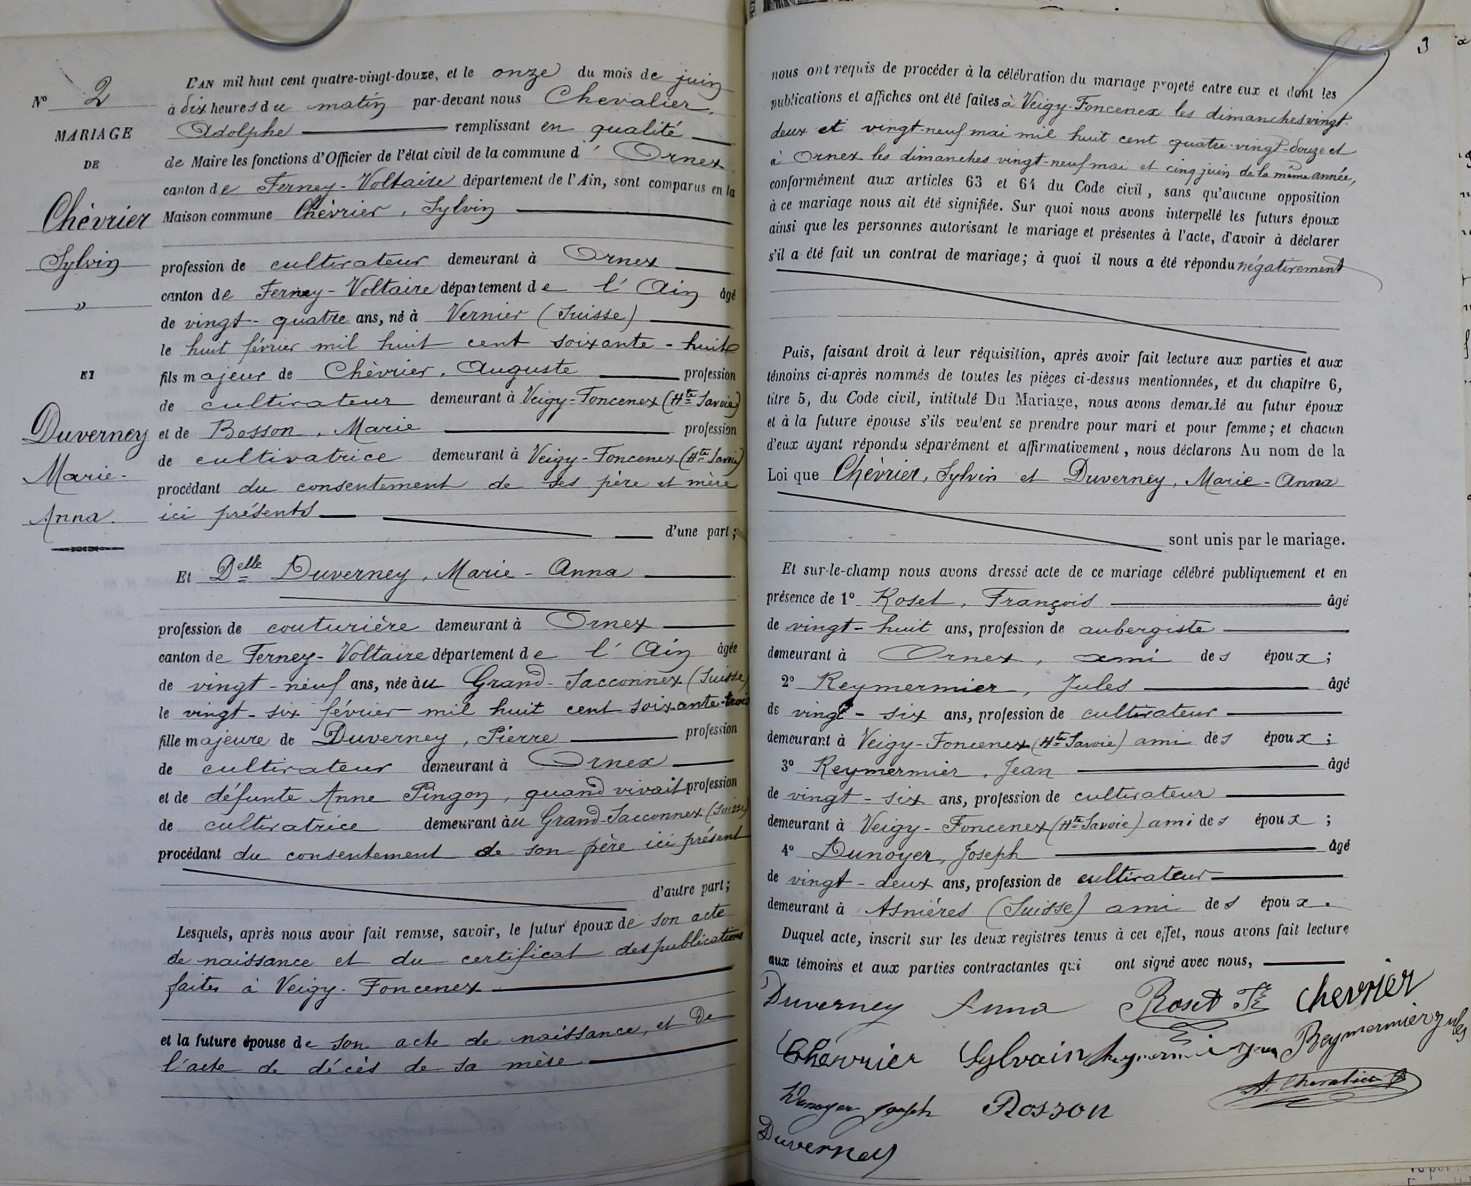 N° 2
MARIAGE
DE
Chèvrier
Sylvin
"
ET
Duverney
Marie-
Anna.
L'AN mil huit cent quatre-vingt-douze, et le onze du mois de juin
à dix heures du matin par-devant nous Chevalier,
Adolphe remplissant en qualité
de Maire les fonctions d'Officier de l'état civil de la commune d' Ornex
canton de Ferney-Voltaire département de l'Ain, sont comparus en la
Maison commune Chèvrier, Sylvin
profession de cultivateur demeurant à Ornex
canton de Ferney-Voltaire département de l'Ain âgé
de vingt-quatre ans, né à Vernier (Suisse)
le huit février mil huit cent soixante-huit
fils majeur de Chèvrier, Auguste profession
de cultivateur demeurant à Veigy-Foncenex (Hte Savoie)
et de Bosson, Marie profession
de cultivatrice demeurant à Veigy-Foncenex (Hte Savoie)
procédant du consentement de ses père et mère
ici présents
d'une part;
Et Delle Duverney, Marie-Anna
profession de couturière demeurant à Ornex
canton de Ferney-Voltaire département de l'Ain âgée
de vingt-neuf ans, née au Grand-Sacconnex (Suisse)
le vingt-six février mil huit cent soixante-trois
fille majeure de Duverney, Pierre profession
de cultivateur demeurant à Ornex
et de défunte Anne Pingon, quand vivait profession
de cultivatrice demeurant au Grand-Sacconnex (Suisse)
procédant du consentement de son père ici présent
d'autre part;
Lesquels, après nous avoir fait remise, savoir, le futur époux de son acte
de naissance et du certificat des publications
faites à Veigy-Foncenex
et la future épouse de son acte de naissance, et de
l'acte de décès de sa mère
3
nous ont requis de procéder à la célébration du mariage projeté entre eux et dont les
publications et affiches ont été faites à Veigy-Foncenex les dimanches vingt-
deux et vingt-neuf mai mil huit cent quatre-vingt-douze et
à Ornex les dimanches vingt-neuf mai et cinq juin de la même année,
conformément aux articles 63 et 64 du Code civil, sans qu'aucune opposition
à ce mariage nous ait été signifiée. Sur quoi nous avons interpellé les futurs époux
ainsi que les personnes autorisant le mariage et présentes à l'acte, d'avoir à déclarer
s'il a été fait un contrat de mariage; à quoi il nous a été répondu négativement
Puis, faisant droit à leur réquisition, après avoir fait lecture aux parties et aux
témoins ci-après nommés de toutes les pièces ci-dessus mentionnées, et du chapitre 6,
titre 5, du Code civil, intitulé Du Mariage, nous avons demandé au futur époux
et à la future épouse s'ils veulent se prendre pour mari et pour femme; et chacun
d'eux ayant répondu séparément et affirmativement, nous déclarons Au nom de la
Loi que Chèvrier, Sylvin et Duverney, Marie-Anna
sont unis par le mariage.
Et sur-le-champ nous avons dressé acte de ce mariage célébré publiquement et en
présence de 1° Roset, François âgé
de vingt-huit ans, profession de aubergiste
demeurant à Ornex, ami des époux;
2° Reymermier, Jules âgé
de vingt-six ans, profession de cultivateur
demeurant à Veigy-Foncenex (Hte Savoie) ami des époux;
3° Reymermier, Jean âgé
de vingt-six ans, profession de cultivateur
demeurant à Veigy-Foncenex (Hte Savoie) ami des époux;
4° Dunoyer, Joseph âgé
de vingt-deux ans, profession de cultivateur
demeurant à Asnières (Suisse) ami des époux.
Duquel acte, inscrit sur les deux registres tenus à cet effet, nous avons fait lecture
aux témoins et aux parties contractantes qui ont signé avec nous,
Duverney Anna Roset Fr. Chevrier
Chevrier Sylvain Reymermier Jean Reymermier Jules
A. Chevalier
Dunoyer Joseph Bosson
Duverney